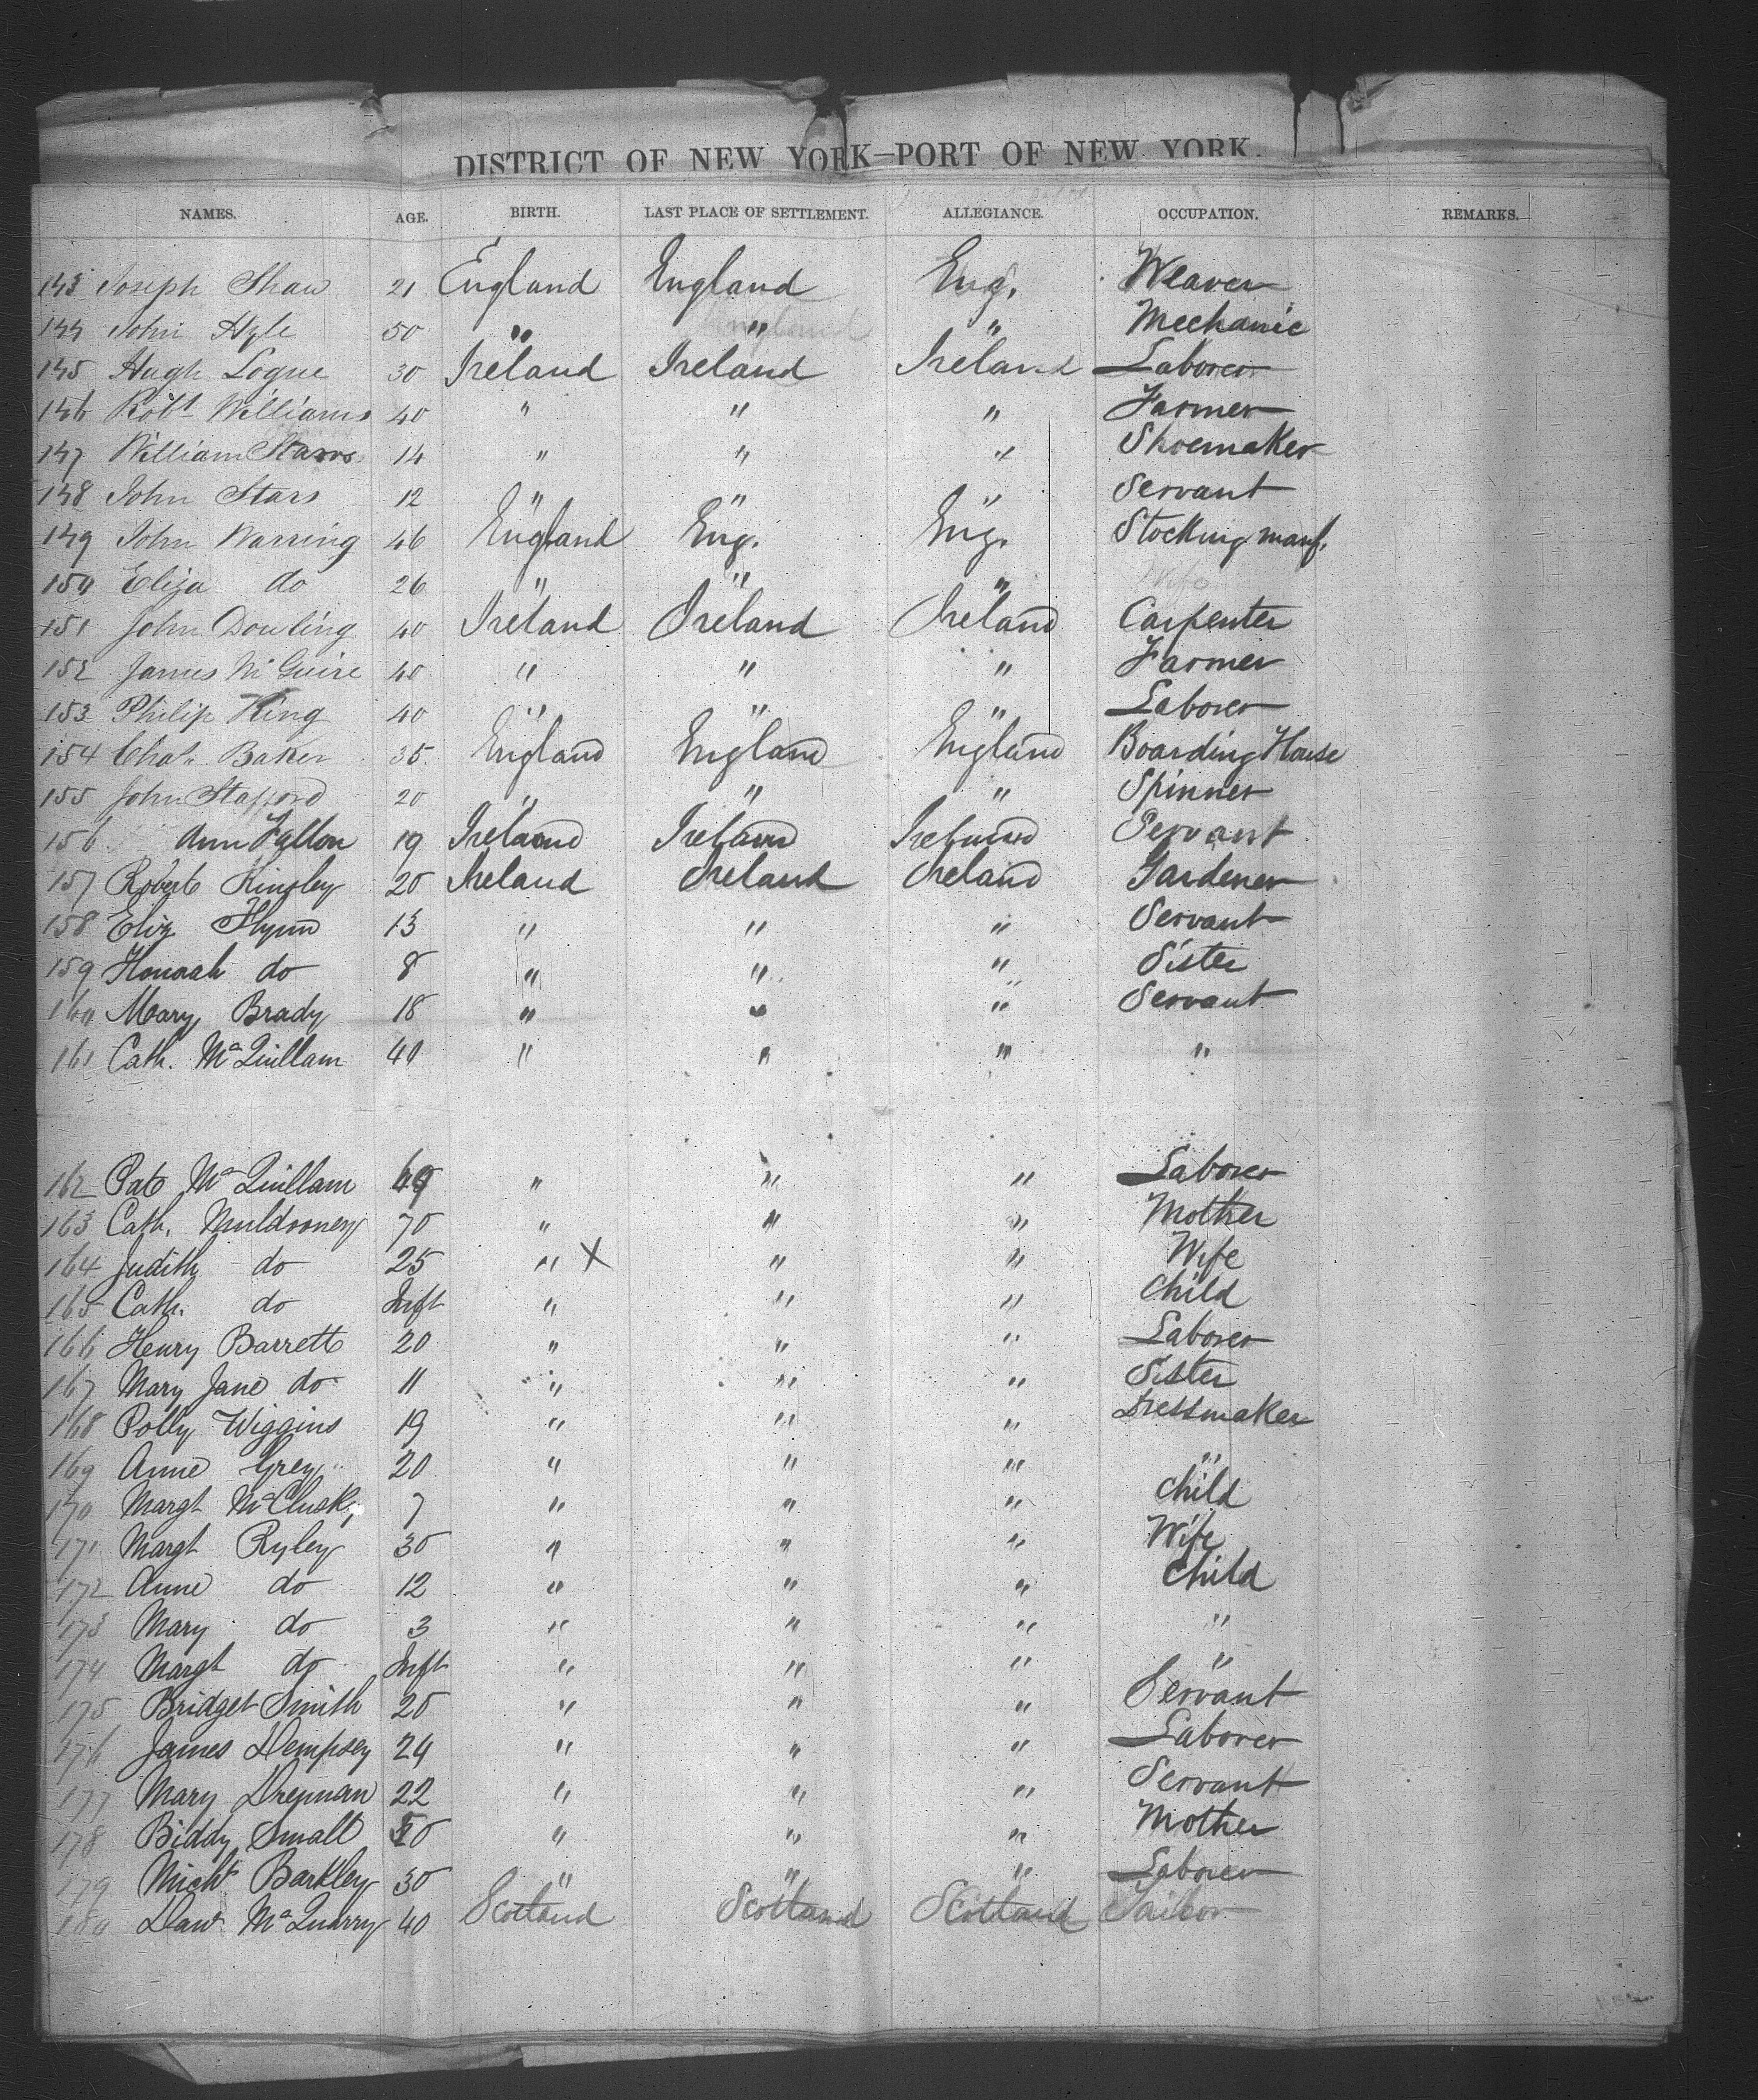 DISTRICT OF NEW YORK—PORT OF NEW YORK.
NAMES. AGE. BIRTH. LAST PLACE OF SETTLEMENT. ALLEGIANCE. OCCUPATION. REMARKS.
143 Joseph Shaw 21 England England Eng. Weaver
144 John Hyle 50 " " " Mechanic
145 Hugh Logue 30 Ireland Ireland Ireland Laborer
146 Robt Williams 40 " " " Farmer
147 William Starrs 14 " " " Shoemaker
148 John Stars 12 " " " Servant
149 John Warring 46 England Eng. Eng. Stocking manf.
150 Eliza do 26 " " " Wife
151 John Dowling 40 Ireland Ireland Ireland Carpenter
152 James McGuire 40 " " " Farmer
153 Philip King 40 " " " Laborer
154 Chas. Baker 35 England England England Boarding House
155 John Stafford 20 " " " Spinner
156 Ann Fallon 19 Ireland Ireland Ireland Servant
157 Robert Kingley 20 Ireland Ireland Ireland Gardener
158 Eliz Flynn 13 " " " Servant
159 Honnah do 8 " " " Sister
160 Mary Brady 18 " " " Servant
161 Cath. McQuillam 40 " " " "
162 Pat McQuillam " " " Laborer
163 Cath. Muldooney 70 " " " Mother
164 Judith do 25 " X " " Wife
165 Cath. do Inft " " " Child
166 Henry Barrett 20 " " " Laborer
167 Mary Jane do 11 " " " Sister
168 Polly Wiggins 19 " " " Dressmaker
169 Anne Grey 20 " " " "
170 Margt McClusky 7 " " " Child
171 Margt Ryley 30 " " " Wife
172 Anne do 12 " " " Child
173 Mary do 3 " " " "
174 Margt do Inft " " " "
175 Bridget Smith 20 " " " Servant
176 James Dempsey 24 " " " Laborer
177 Mary Drennan 22 " " " Servant
178 Biddy Small 50 " " " Mother
179 Michl Barkley 30 " " " Laborer
180 Daw McQuarry 40 Scotland Scotland Scotland Tailor